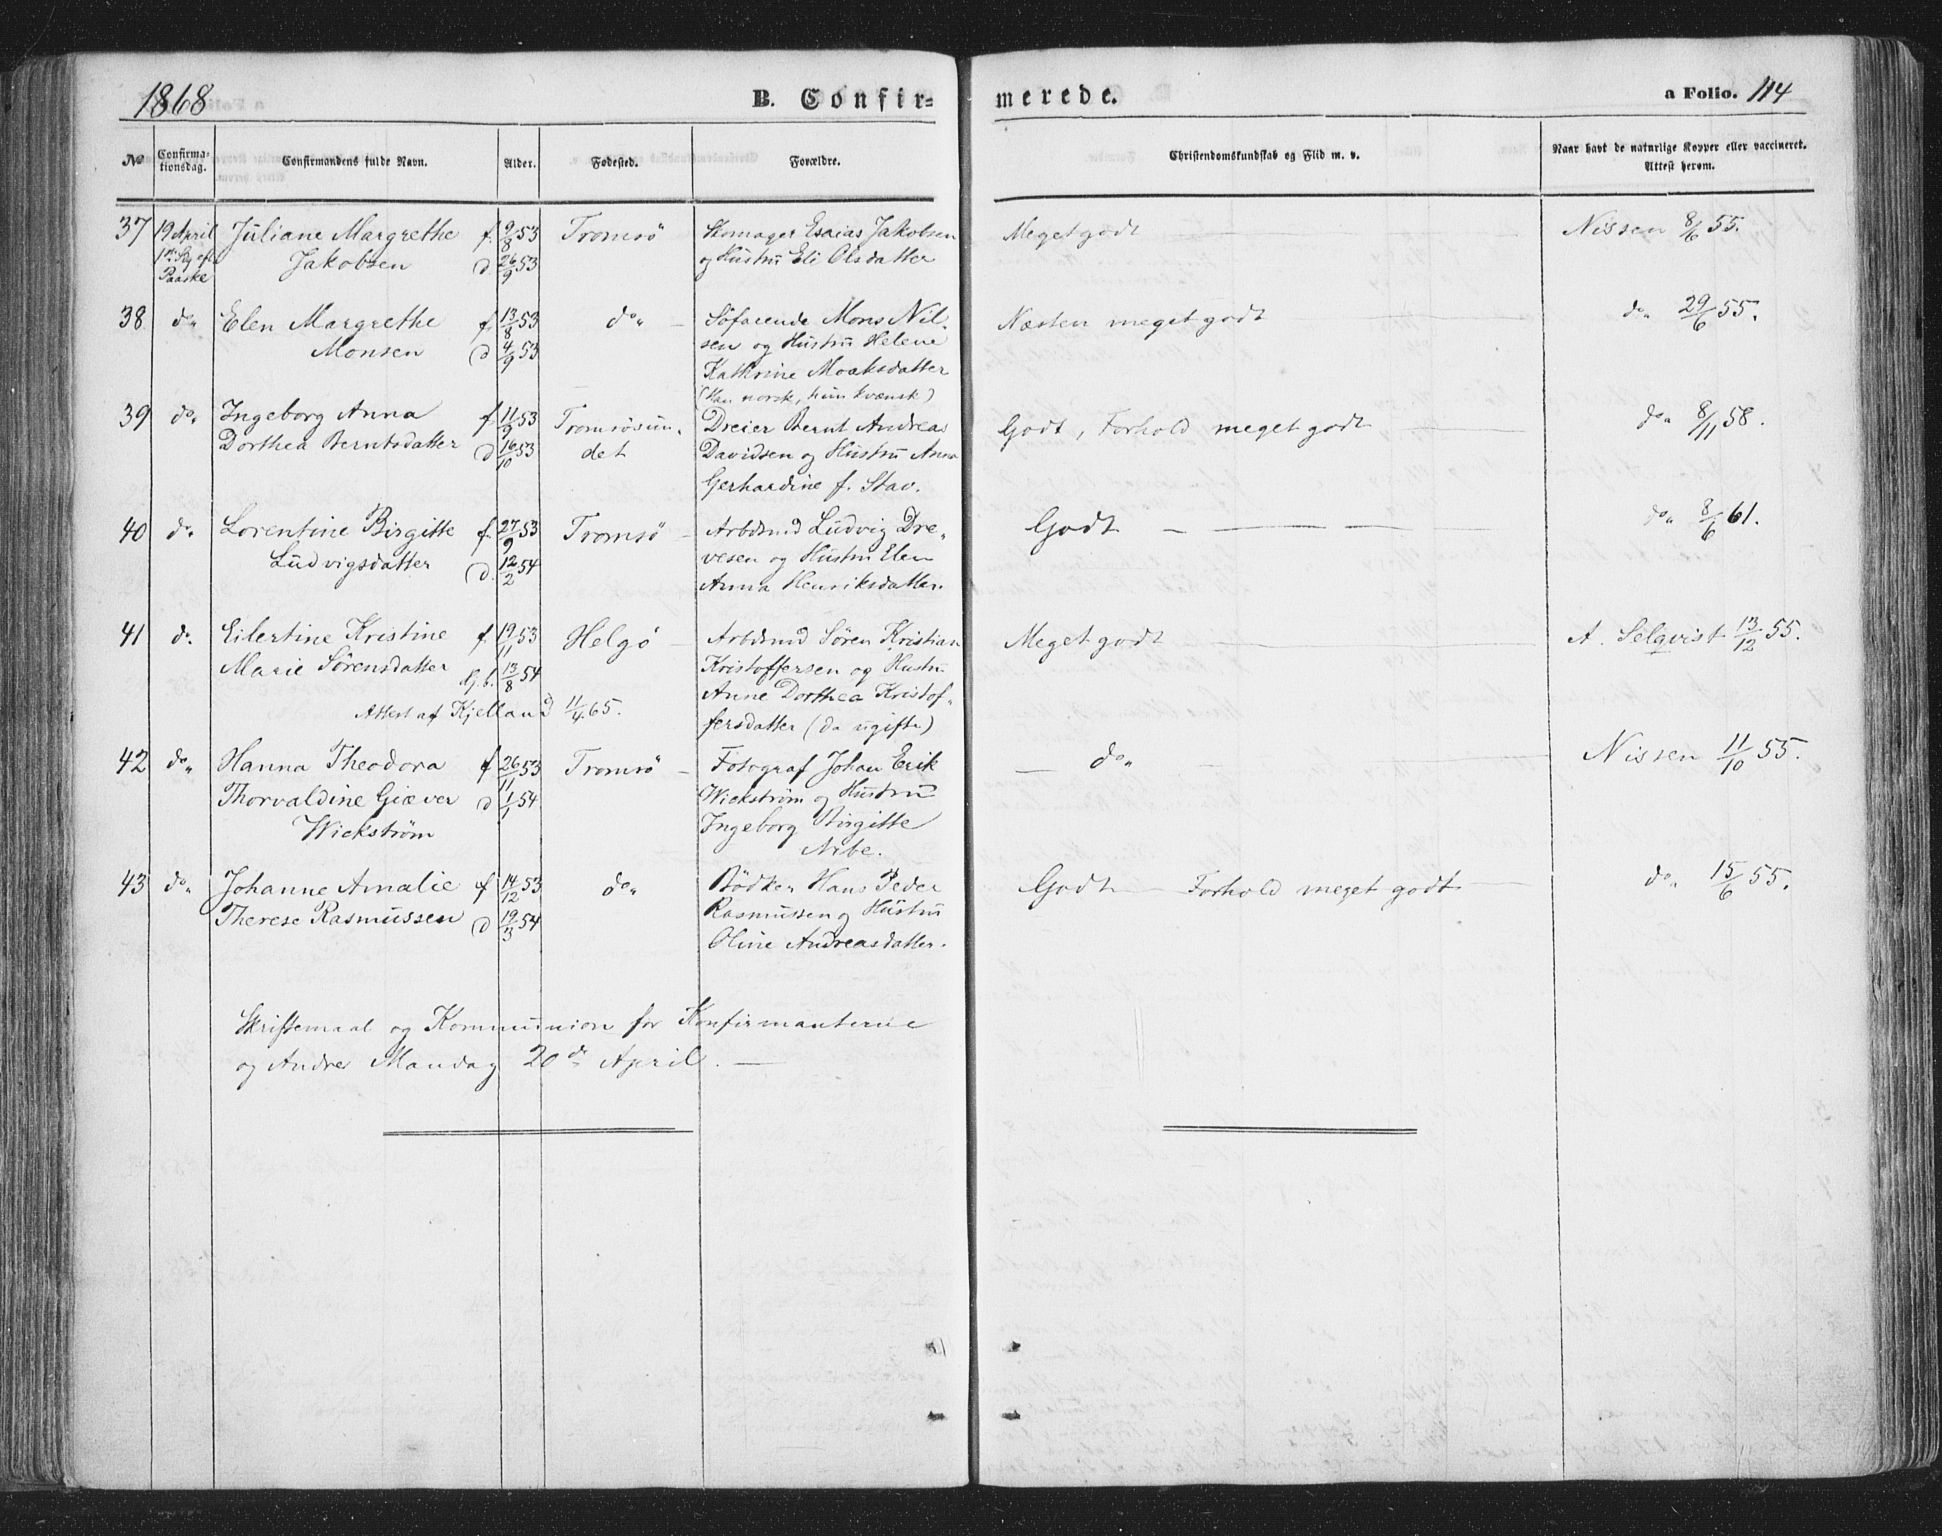 1868 B. Confir= merede. a Folio. 114
No Confirma-tionsdag. Confirmandens fulde Navn. Alder. Fødested. Forældre. Christendomskundskab og Flid m. v. Naar havt de naturlige Kopper eller vaccineret. Attest herom.
37 19 April Juliane Margrethe f. 9/8 53 Tromsö Skomager Esaias Jakobsen Meget godt Nissen 8/6 55.
1ste Sg. eft. Paaske Jakobsen d 26/9 53 og Hustru Eli Olsdatter
38 do„ Elen Margrethe f. 13/8 53 do„ Söfarende Mons Nil- Næsten meget godt do„ 29/6 55.
Monsen d 4/9 53 sen og Hustru Helene
Kathrine Moaksdatter
(Han norsk, hun kvænsk)
39 do„ Ingeborg Anna f 11/9 53 Tromsösun- Dreier Bernt Andreas Godt, Forhold meget godt do„ 8/11 58.
Dorthea Berntsdatter d 16/10 53 det Davidsen og Hustru Anna
Gerhardine f. Stav.
40 do. Lorentine Birgitte f. 27/9 53 Tromsö Arbdsmd Ludvig Dre- Godt do„ 8/6 61.
Ludvigsdatter d. 12/2 54 vesen og Hustru Elen
Anna Henriksdatter.
41 do. Eilertine Kristine f. 19/11 53 Helgö Arbdsmd Sören Kristian Meget godt A. Selqvist 13/12 55.
Marie Sörensdatter 13/8 54 Kristoffersen og Hustru
Anne Dorthea Kristof-
Attest af Kjelland 11/4 65. fersdatter (da ugifte)
42 do„ Hanna Theodora f 26/11 53 Tromsö Fotograf Johan Erik do„ Nissen 11/10 55.
Thorvaldine Giæver d 1/1 54 Wickström og Hustru
Wickström Ingeborg Birgitte
Nibe.
43 do„ Johanne Amalie f 14/12 53 do„ Bödker Hans Peder Godt Forhold meget godt do„ 15/6 55.
Therese Rasmussen d 19/3 54 Rasmussen og Hustru
Oline Andreasdatter.
Skriftemaal og Kommunion for Konfirmanterne
og Andre Mandag 20de April.